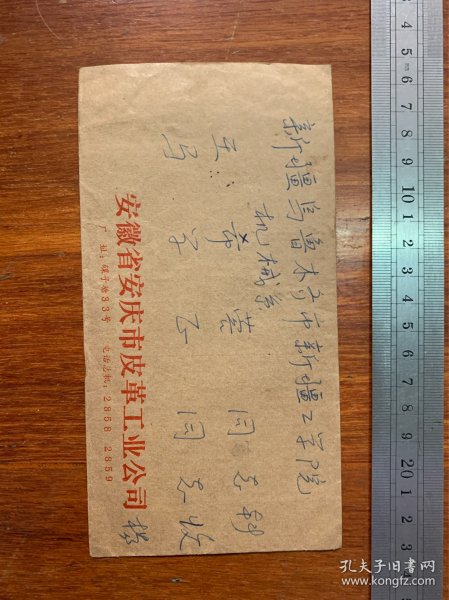 新疆乌鲁木齐市新疆工学院
机械系
王 荣 同志 转
马 玉 同志 收
安徽省安庆市皮革工业公司 杨
厂 址：碟子塘33号 电话总机：2858 2859
3 4 5 6 7 8 9 10 1 2 3 4 5 6 7 8 9 20 1 2 3
孔夫子旧书网
www.kongfz.com